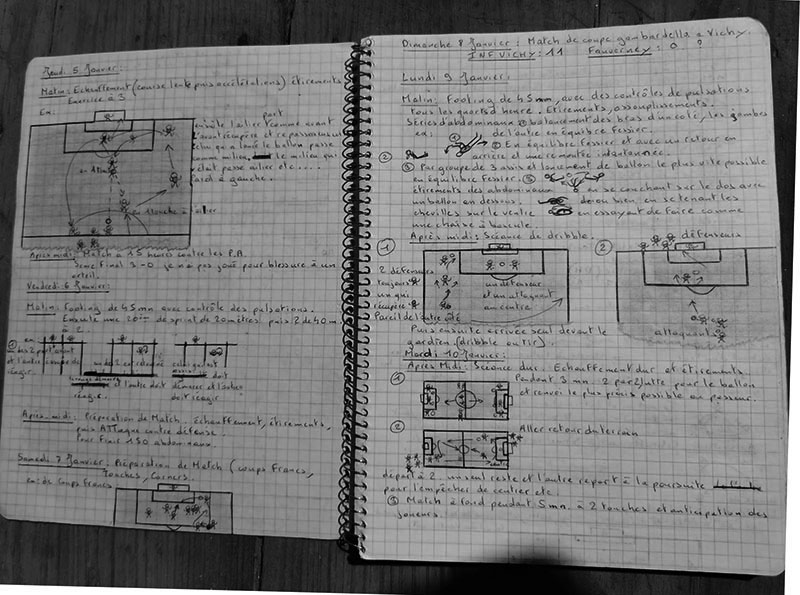 Jeudi 5 Janvier :
Matin : Echauffement (course lente puis accélérations) étirements.
Exercice à 3
Ex :
part
ensuite l'ailier comme avant
l'avant récupère et repasse
celui qui a lancé le ballon passe
comme milieu, le milieu qui
était passe ailier etc....
à gauche.
en Att
en Attache à l'ailier
Après midi : Match à 15 heures contre les P.A.
Final 3-0 je n'ai pas joué pour blessure à un
orteil.
Vendredi 6 Janvier :
Matin : Footing de 45 mn avec contrôle des pulsations.
Ensuite une série de sprint de 20 mètres puis 2 de 40 m.
à 2.
en
①
des 2 part avant
et l'autre essaye de
réagir.
un des 2 est retourné
et l'autre doit
réagir.
celui qui est
doit
démarrer et l'autre
doit réagir
Après-midi : Préparation de Match. échauffement, étirements,
puis Attaque contre défense.
Pour Finir 150 abdominaux.
Samedi 7 Janvier : Préparation de Match (coups Francs,
Touches, corners.
ex : de Coups Francs
Dimanche 8 Janvier : Match de coupe gambardella à Vichy.
INF VICHY : 11 Fauverney : 0 ?
Lundi 9 Janvier :
Matin : Footing de 45 mn, avec des contrôles de pulsations
tous les quarts d'heure. Etirements, assouplissements.
Séries d'abdominaux ① balancement des bras d'un coté, les jambes
ex : de l'autre en équilibre Fessier.
② ② En équilibre Fessier et avec un retour en
arrière et une remontée instantanée.
③ Par groupe de 3 assis et lancement de ballon le plus vite possible
en équilibre Fessier.
étirements des abdominaux en se couchant sur le dos avec
un ballon en dessous. ou bien en se tenant les
chevilles sur le ventre en essayant de faire comme
une chaise à bascule.
Après midi : Séance de dribble.
① ② défenseurs
2 défenseurs
toujours
un qui
récupère
Pareil de l'autre côté
un défenseur
et un attaquant
au centre
attaquant
Puis ensuite arrivée seul devant le
gardien (dribble ou tir).
Mardi 10 Janvier :
Après Midi : Séance dur. Echauffement dur et étirements.
① Pendant 3 mn. 2 par 2 lutte pour le ballon
et renvoi le plus précis possible au passeur.
② Aller retour du terrain
départ à 2 un seul reste et l'autre repart à la poursuite
pour l'empêcher de centrer etc.
③ Match à fond pendant 5 mn. à 2 touches et anticipation des
joueurs.